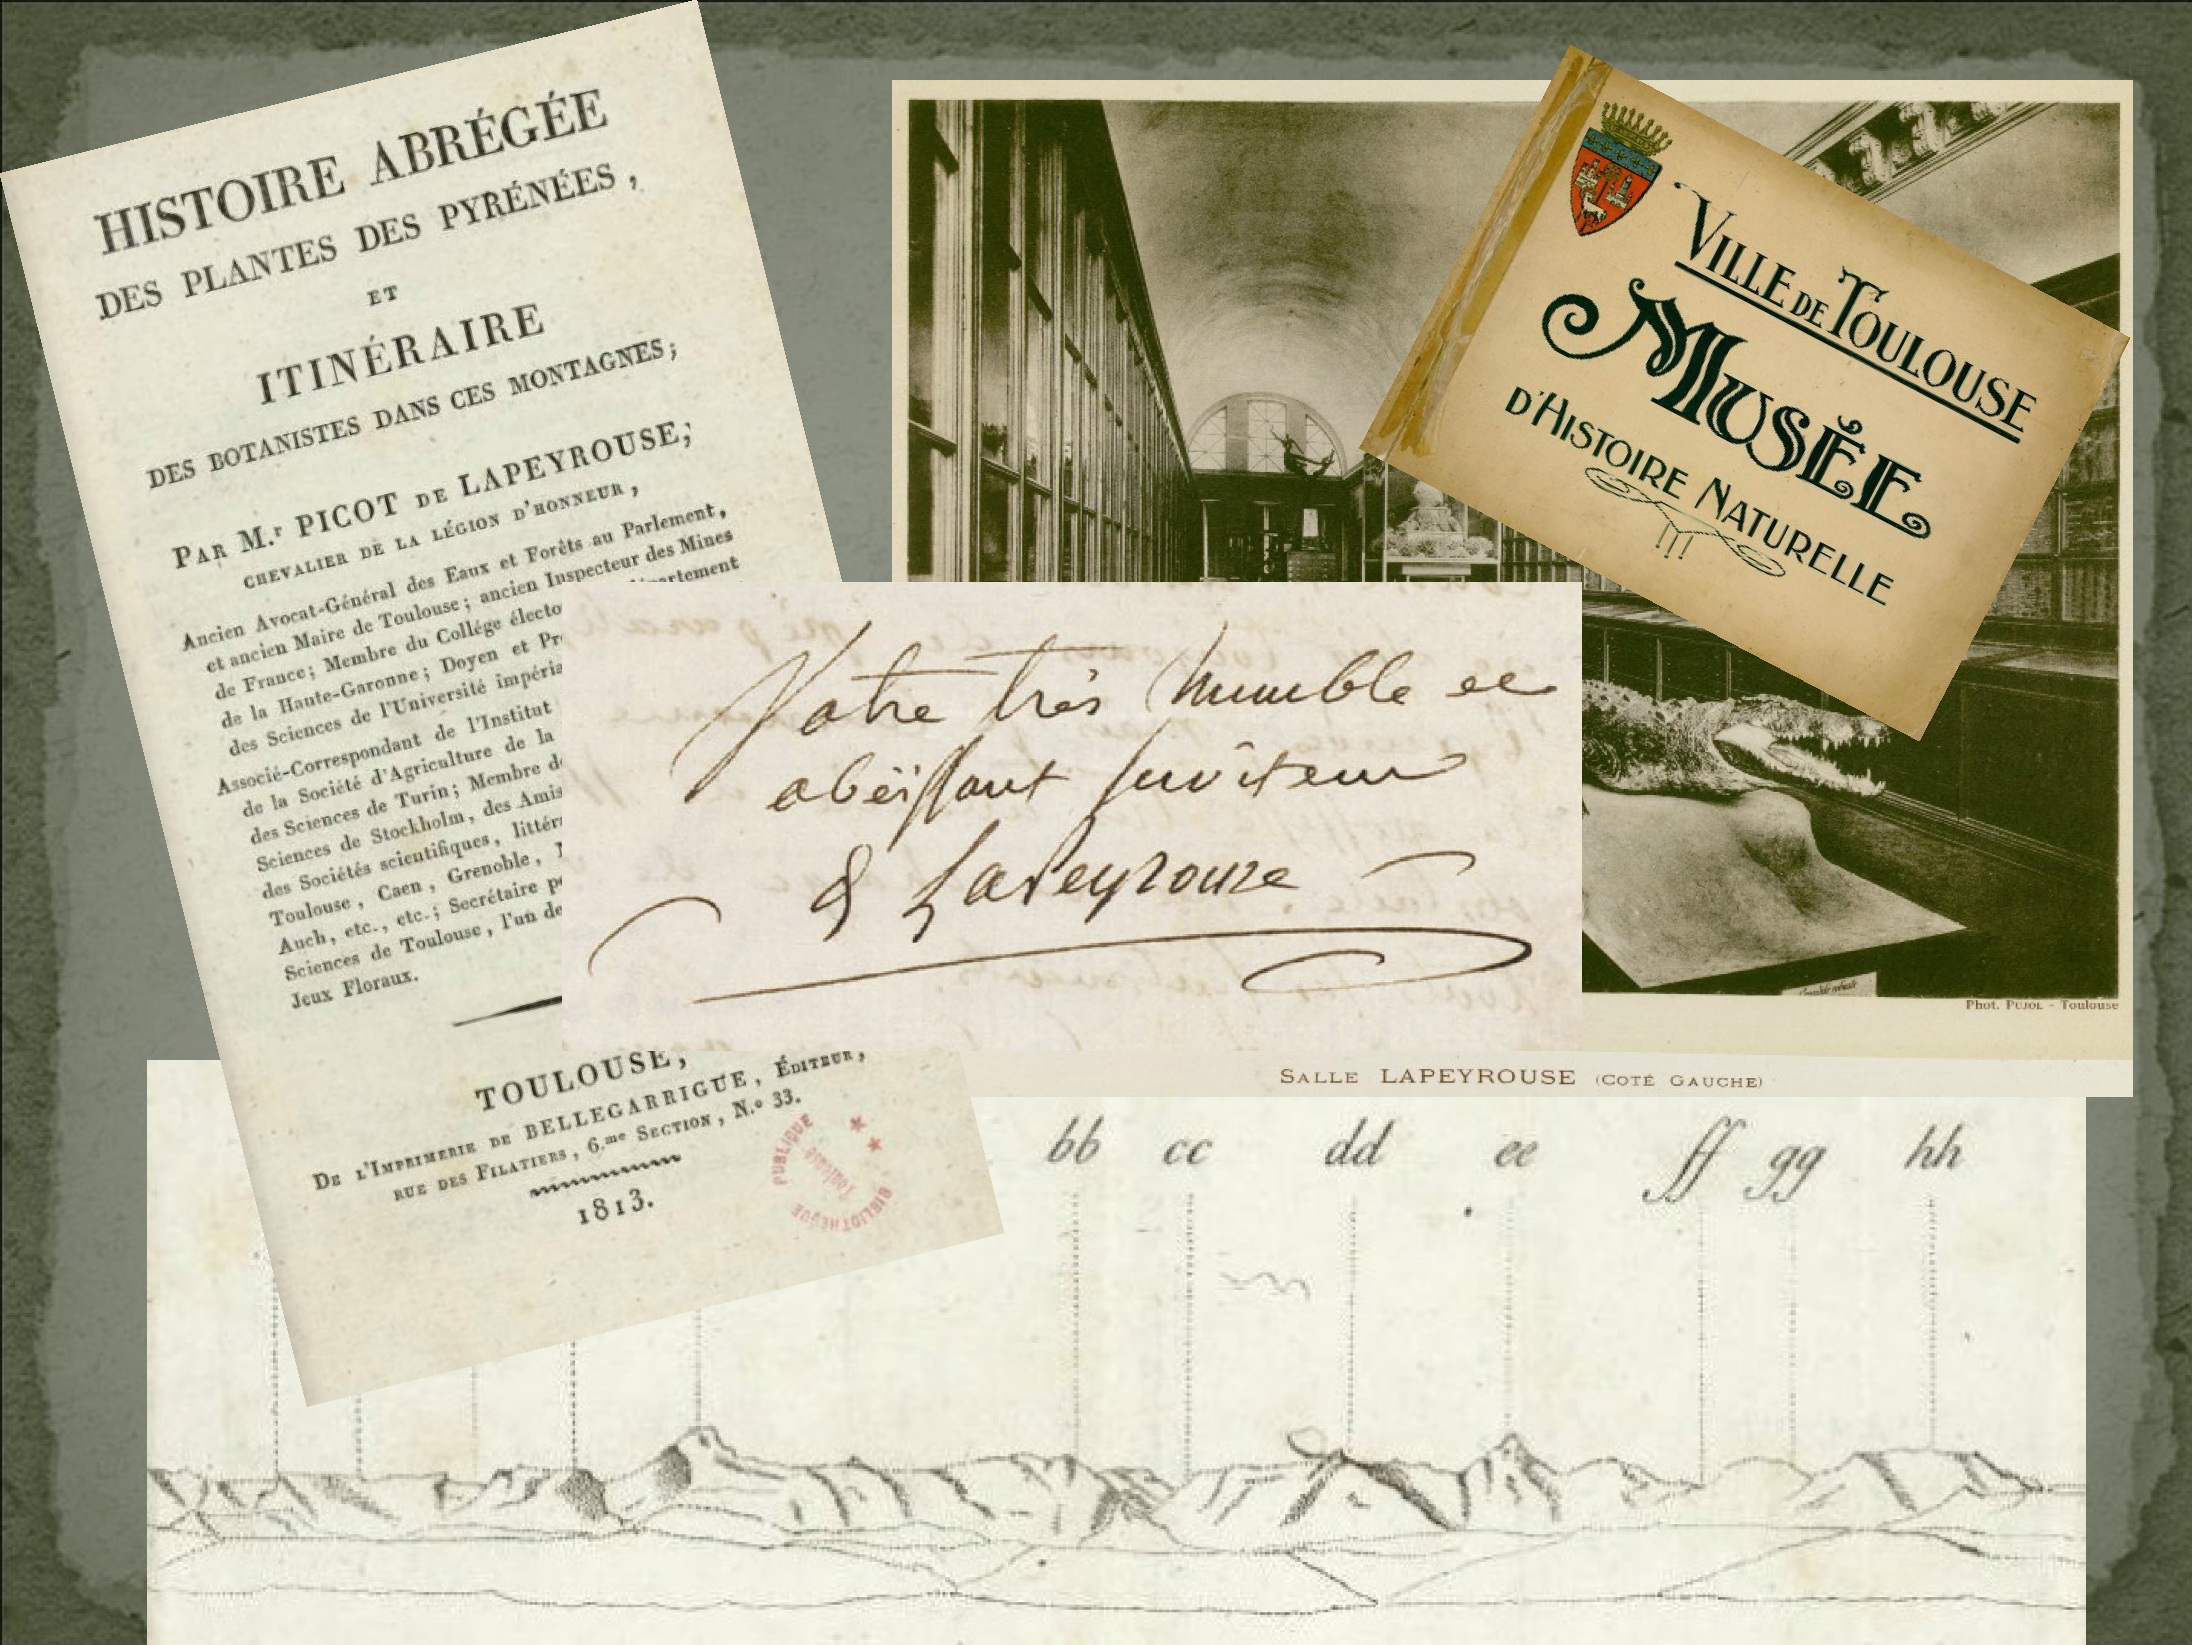 HISTOIRE ABRÉGÉE
DES PLANTES DES PYRÉNÉES,
ET
ITINÉRAIRE
DES BOTANISTES DANS CES MONTAGNES;
PAR M.r PICOT DE LAPEYROUSE;
CHEVALIER DE LA LÉGION D'HONNEUR,
Ancien Avocat-Général des Eaux et Forêts au Parlement,
et ancien Maire de Toulouse; ancien Inspecteur des Mines
de France; Membre du Collége électo
de la Haute-Garonne; Doyen et Pr
des Sciences de l'Université impéria
Associé-Correspondant de l'Institut
de la Société d'Agriculture de la
des Sciences de Turin; Membre d
Sciences de Stockholm, des Amis
des Sociétés scientifiques, littér
Toulouse, Caen, Grenoble,
Auch, etc., etc.; Secrétaire p
Sciences de Toulouse, l'un de
Jeux Floraux.
TOULOUSE,
DE L'IMPRIMERIE DE BELLEGARRIGUE, ÉDITEUR,
RUE DES FILATIERS, 6.me SECTION, N.o 33.
1813.
BIBLIOTHÈQUE PUBLIQUE
Toulouse
VILLE DE TOULOUSE
MUSÉE
D'HISTOIRE NATURELLE
Votre très humble et
obéissant serviteur
& LaPeyrouse
Phot. PUJOL - Toulouse
SALLE LAPEYROUSE (COTÉ GAUCHE)
bb cc dd ee ff gg hh